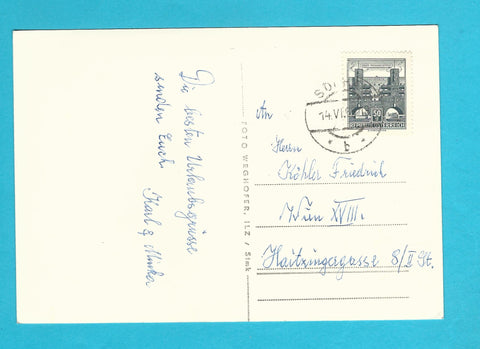 Die besten Urlaubsgrüsse
senden Euch
Karl &
FOTO WEGHOFER, ILZ / Stmk
14.VI.
b
REPUBLIK ÖSTERREICH
An
Herrn
Köhler Friedrich
Wien XVIII.
Haitzingergasse 8/II St.